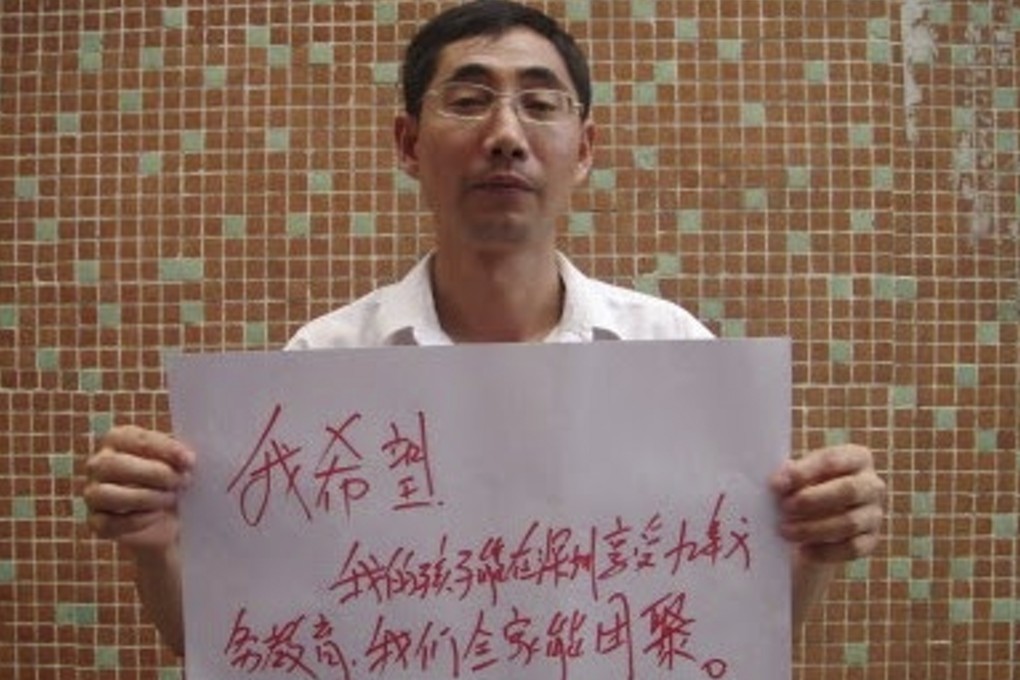 我希望
我的孩子能在深圳享受九年义
务教育.我们全家能团聚。